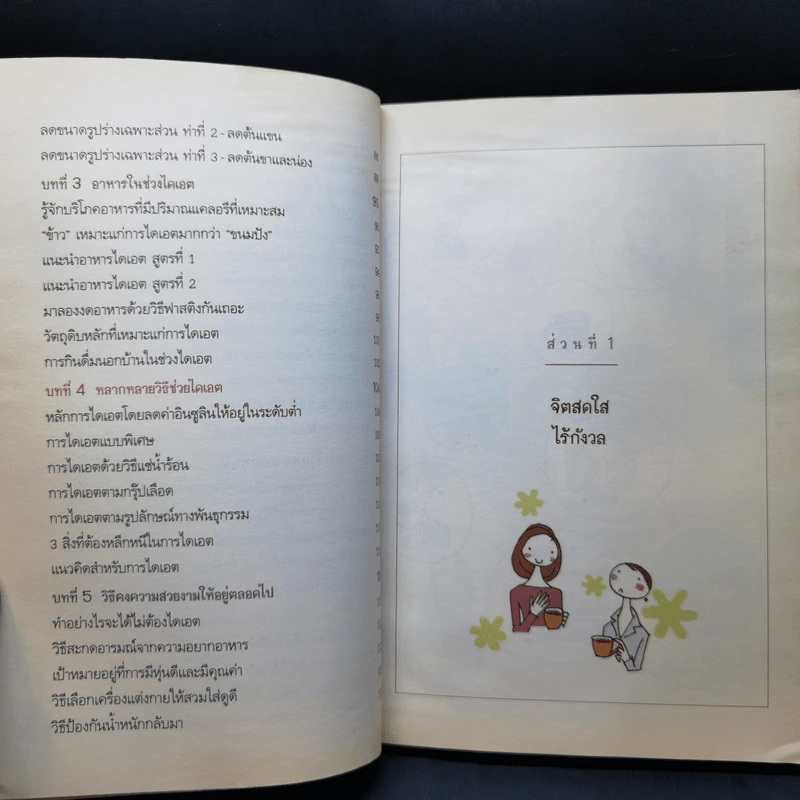 ลดขนาดรูปร่างเฉพาะส่วน ท่าที่ 2 - ลดต้นแขน
ลดขนาดรูปร่างเฉพาะส่วน ท่าที่ 3 - ลดต้นขาและน่อง
บทที่ 3 อาหารในช่วงไดเอต 90
รู้จักบริโภคอาหารที่มีปริมาณแคลอรีที่เหมาะสม
"ข้าว" เหมาะแก่การไดเอตมากกว่า "ขนมปัง"
แนะนำอาหารไดเอต สูตรที่ 1
แนะนำอาหารไดเอต สูตรที่ 2
มาลองงดอาหารด้วยวิธีฟาสติงกันเถอะ
วัตถุดิบหลักที่เหมาะแก่การไดเอต
การกินดื่มนอกบ้านในช่วงไดเอต
บทที่ 4 หลากหลายวิธีช่วยไดเอต 104
หลักการไดเอตโดยลดค่าอินซูลินให้อยู่ในระดับต่ำ
การไดเอตแบบพิเศษ
การไดเอตด้วยวิธีแช่น้ำร้อน
การไดเอตตามกรุ๊ปเลือด
การไดเอตตามรูปลักษณ์ทางพันธุกรรม
3 สิ่งที่ต้องหลีกหนีในการไดเอต
แนวคิดสำหรับการไดเอต
บทที่ 5 วิธีคงความสวยงามให้อยู่ตลอดไป
ทำอย่างไรจะได้ไม่ต้องไดเอต
วิธีสะกดอารมณ์จากความอยากอาหาร
เป้าหมายอยู่ที่การมีหุ่นดีและมีคุณค่า
วิธีเลือกเครื่องแต่งกายให้สวมใส่ดูดี
วิธีป้องกันน้ำหนักกลับมา
ส่วนที่ 1
จิตสดใส
ไร้กังวล